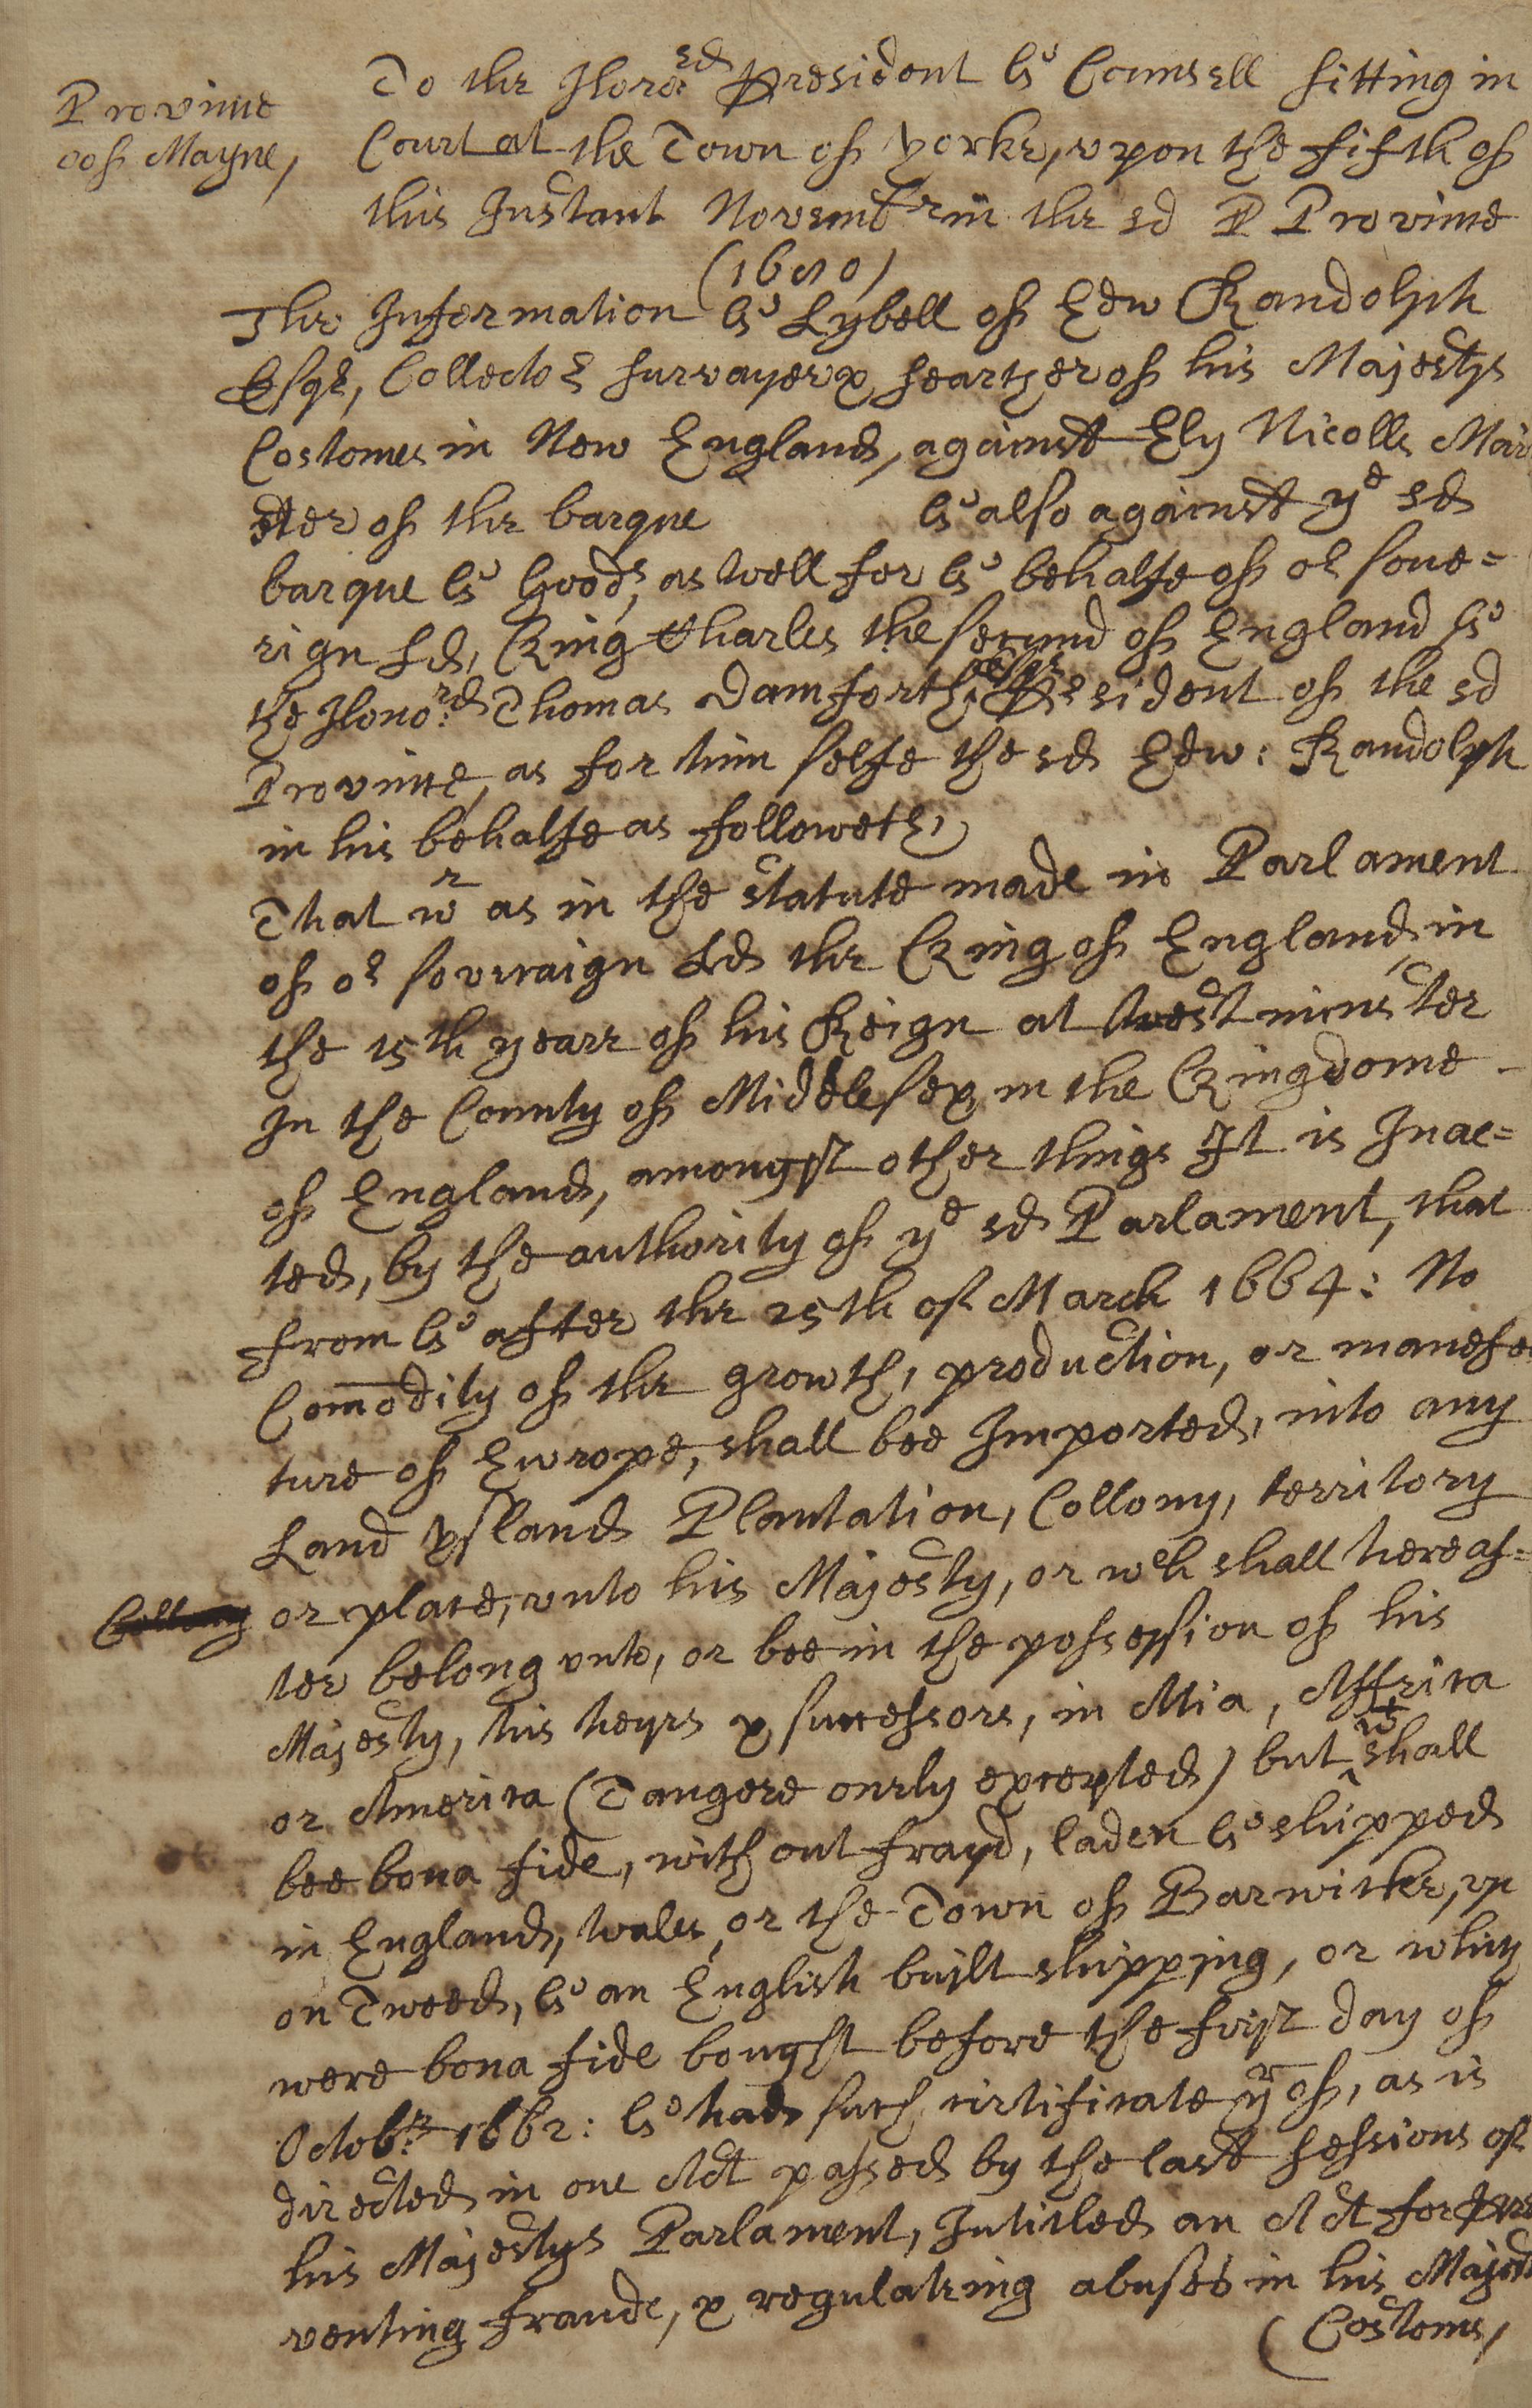 Province
of Mayne,
To the Honored President & Counsell sitting in
Court at the Town of Yorke, upon the fifth of
this Instant Novembr in the sd P Province
(1680)
The Information & Lybell of Edw Randolph
Esqr, Collector survayer & searcher of his Majestys
Costomes in New England, against Ely Nicolls Mais
ster of the barque & also against ye sd
barque & Goods, as well for & behalfe of or sove=
rign Ld, King Charles the second of England &
the Honord: Thomas Damforth, Esqr President of the sd
Province, as for him selfe the sd Edw: Randolph
in his behalfe as followeth,
That wr as in the statute made in Parlament
of or soveraign Ld the King of England, in
the 15th yeare of his Reign at Westminster
In the County of Middlesex, in the Kingdome -
of England, amongst other things It is Inac=
ted, by the authority of ye sd Parlament, that
from & after the 25th of March 1664: No
Comodity of the growth, production, or manefa
ture of Ewrope, shall bee Imported, into any
Land Ysland Plantation, Collony, territory
Collony or place, unto his Majesty, or wch shall hereaf=
ter belong unto, or bee in the possession of his
Majesty, his heyrs & successors, in Asia, Affrica
or America (Tangere onely excepted) but wt shall
bee bona fide, with out frayd, laden & shipped
in England, Wales, or the Town of Barwicke, up
on Tweed, & an English built shipping, or which
were bona fide bought before the first day of
Octobr: 1662: & had such certificate yr of, as is
directed in one Act passed by the last sessions of
his Majestys Parlament, Intitled an Act for Pre
venting fraude, & regulateing abuses in his Majest
(Costoms,